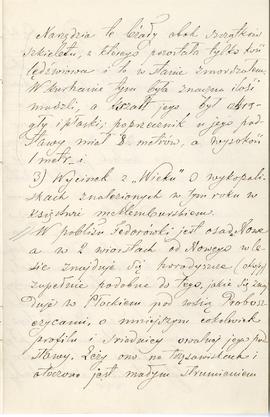 Narzędzia te leżały obok szczątków
szkieletu, z którego pozostała tylko kość
lędźwiowa i to w stanie zmurszałem.
W kurhanie tym była znaczna ilość
a kształt jego był okrą-
gły i płaski; poprzecznik u jego pod-
stawy miał 8 metrów, a wysokość
1 metr.
3) Wycinek z „Wieku" o wykopali-
skach znalezionych w tym roku w
księstwie meklemburskiem.
W pobliżu jest osada Nowe
a w 2 wiorstach od Nowego w le-
sie znajduje się horodyszcze
zupełnie podobne do tego, jakie się znaj-
duje w Płockiem pod wsią Probosz-
czycami, o mniejszym cokolwiek
profilu i średnicy owalnej jego pod-
stawy. Leży ono na trzęsawiskach i
otoczone jest małym strumieniem